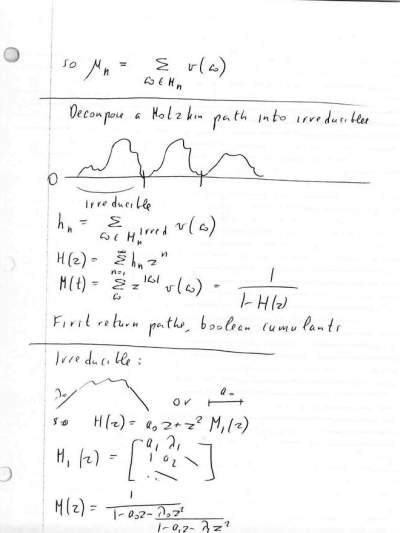 so μ_n = Σ_{ω ∈ M_n} v(ω)
Decompose a Motzkin path into irreducibles
0
irreducible
h_n = Σ_{ω ∈ M_n^{irred}} v(ω)
H(z) = Σ_{n=1}^{∞} h_n z^n
M(t) = Σ_ω z^{|ω|} v(ω) = 1/(1-H(z))
First return paths, boolean cumulants
Irreducible:
λ_0 or a_0
so H(z) = a_0 z + z^2 M_1(z)
M_1(z) = [a_1 λ_1
1 a_2
⋱]
M(z) = 1/(1-a_0z-λ_0z^2/(1-a_1z-λ_1z^2